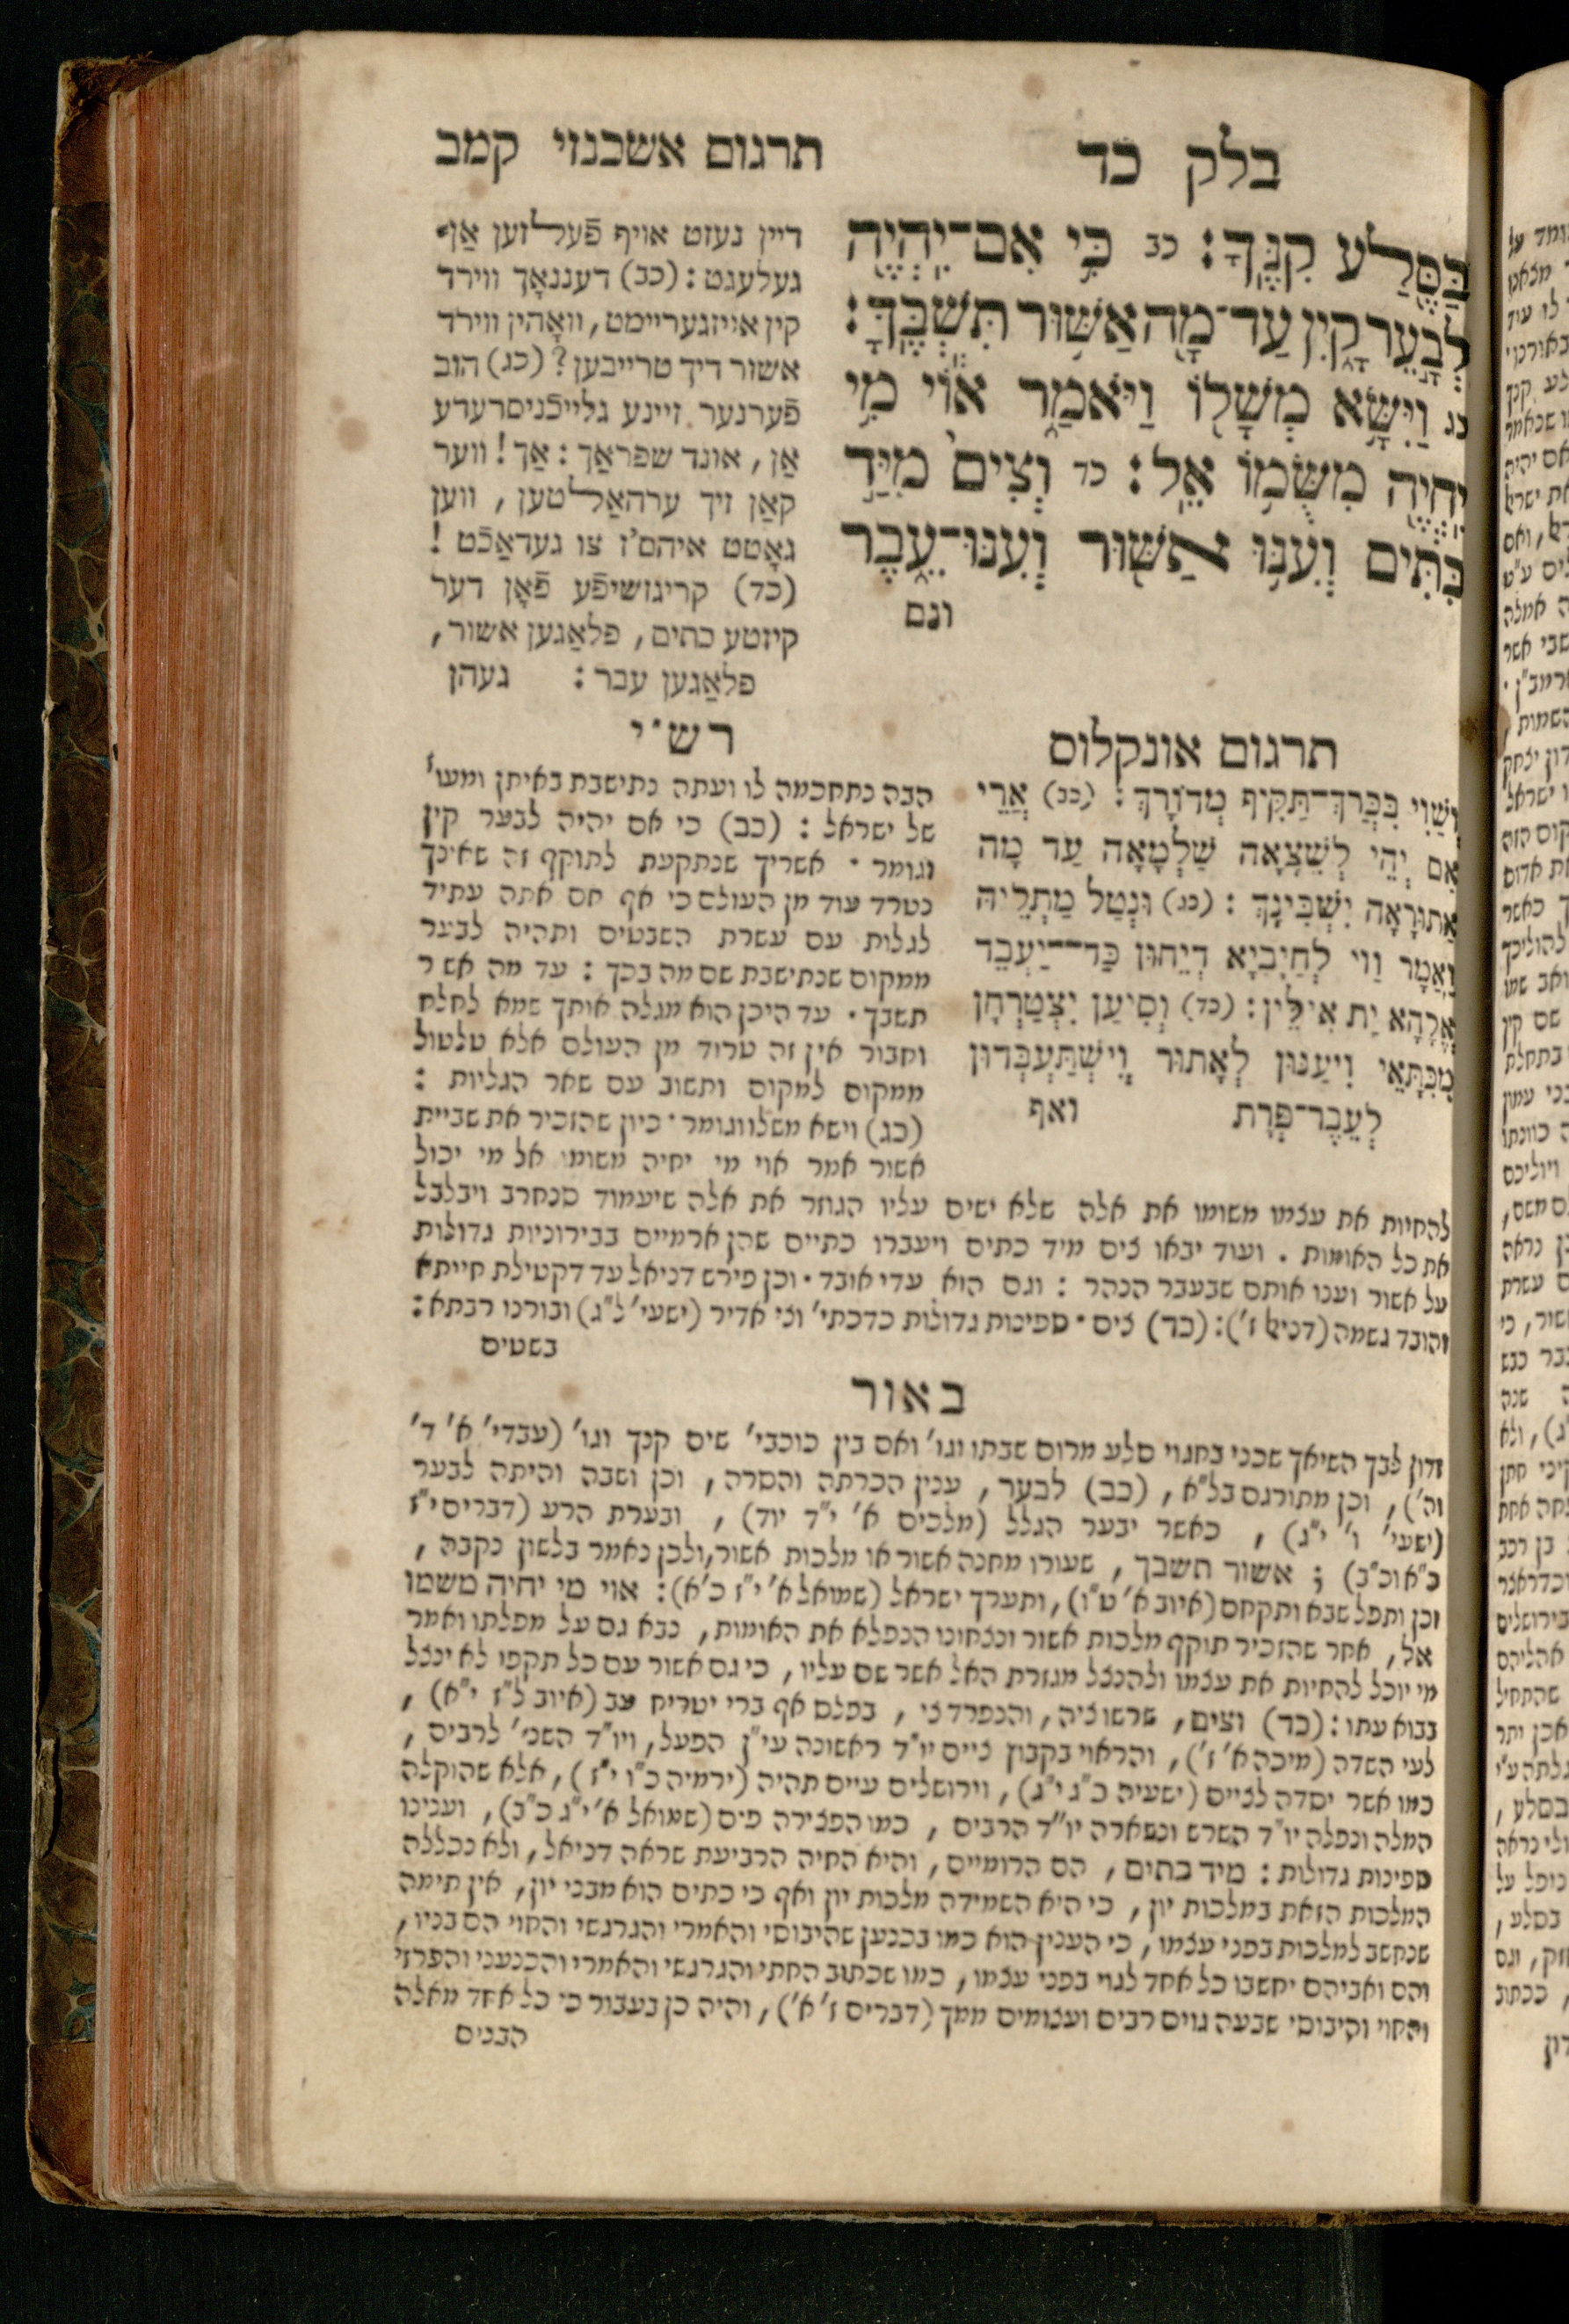 בלק כד
תרגום אשכנזי קמב
בַּסֶּלַע קִנֶּךָ׃ כב כִּי אִם־יִהְיֶה
לְבָעֵר קָיִן עַד־מָה אַשּׁוּר תִּשְׁבֶּךָּ׃
כג וַיִּשָּׂא מְשָׁלוֹ וַיֹּאמַר אוֹי מִי
יִחְיֶה מִשֻּׂמוֹ אֵל׃ כד וְצִים מִיַּד
כִּתִּים וְעִנּוּ אַשּׁוּר וְעִנּוּ־עֵבֶר
וגם
דיין נעזט אויף פֿעללזען אַן־
געלעגט : (כב) דעננאָך ווירד
קין אויזגעריימט, וואָהין ווירד
אשור דיך טרייבען? (כג) הוב
פֿערנער זיינע גלייכֿניסרעדע
אַן, אונד שפראַך : אַך! ווער
קאַן זיך ערהאַלטען, ווען
גאָטט איהם'ז צו געדאַכֿט !
(כד) קריגזשיפֿע פֿאָן דער
קיזטע כתים, פלאַגען אשור,
פלאַגען עבר : געהן
תרגום אונקלוס
וְשַׁוִּי בִּכְרַךְ־תַּקִּיף מְדוֹרָךְ : (כב) אֲרֵי
אִם יְהֵי לְשֵׁצָאָה שַׁלְמָאָה עַד מָה
אַתּוּרָאָה יִשְׁבִּינָךְ : (כג) וּנְטַל מַתְלֵיהּ
וַאֲמָר וַוי לְחַיָּבַיָּא דְיֵחוּן כַּד־יַעְבֵּד
אֱלָהָא יַת אִילֵּין : (כד) וְסִיעַן יִצְטַרְחָן
מִכִּתָּאֵי וִיעַנּוּן לְאַתוּר וְיִשְׁתַּעְבְּדוּן
לְעֵבֶר־פְּרָת ואף
רש״י
הבה נתחכמה לו ועתה נתישבת באיתן ומעוז
של ישראל : (כב) כי אם יהיה לבער קין
וגומר · אשריך שנתקעת לתוקף זה שאינך
נטרד עוד מן העולם כי אף אם אתה עתיד
לגלות עם עשרת השבטים ותהיה לבער
ממקום שנתישבת שם מה בכך : עד מה אשר
תשבך · עד היכן הוא מגלה אותך שמא לחלח
וחבור אין זה טרוד מן העולם אלא טלטול
ממקום למקום ותשוב עם שאר הגליות :
(כג) וישא משלו וגומר · כיון שהזכיר את שביית
אשור אמר אוי מי יחיה משומו אל מי יכול
להחיות את עצמו משומו את אלה שלא ישים עליו הגוזר את אלה שיעמוד סנחרב ויבלבל
את כל האומות . ועוד יבאו צים מיד כתים ויעברו כתיים שהן ארמיים בבירוניות גדולות
על אשור וענו אותם שבעבר הנהר : וגם הוא עדי אובד · וכן פירש דניאל עד דקטילת חייתא
והובד גשמה (דניאל ז') : (כד) צים · ספינות גדולות כדכתי' וצי אדיר (ישעי' ל"ג) ובורנו רבתא :
בשטים
באור
זדון לבך השיאך שכני בחגוי סלע מרום שבתו וגו' ואם בין כוכבי' שים קנך וגו' (עבדי' א' ד'
וה'), וכן מתורגם בל"א, (כב) לבער, ענין הכרתה והסרה, וכן ושבה והיתה לבער
(ישעי' ו' י"ג), כאשר יבער הגלל (מלכים א' י"ד יוד), ובערת הרע (דברים י"ז
כ"א וכ"ב) ; אשור תשבך, שעורו מחנה אשור או מלכות אשור, ולכן נאמר בלשון נקבה,
וכן ותפל שבא ותקחם (איוב א' ט"ו), ותערך ישראל (שמואל א' י"ז כ'א) : אוי מי יחיה משמו
אל, אחר שהזכיר תוקף מלכות אשור ונצחונו הנפלא את האומות, נבא גם על מפלתו ואמר
מי יוכל להחיות את עצמו ולהנצל מגזרת האל אשר שם עליו, כי גם אשור עם כל תקפו לא ינצל
בבוא עתו : (כד) וצים, שרשו ציה, והנפרד צי, בפלס אף ברי יטריח עב (איוב ל"ז י"א),
לעי השדה (מיכה א' ז'), והראוי בקבוץ ציים יו"ד ראשונה עי"ן הפעל, ויו"ד השני' לרבים,
כמו אשר יסדה לציים (ישעיה כ"ג י"ג), וירושלים עיים תהיה (ירמיה כ"ו י"ז), אלא שהוקלה
המלה ונפלה יו"ד השרש ונשארה יו"ד הרבים, כמו הפצירה פים (שמואל א' י"ג כ"ב), וענינו
ספינות גדולות : מיד כתים, הם הרומיים, והיא החיה הרביעת שראה דניאל, ולא נכללה
המלכות הזאת במלכות יון, כי היא השמידה מלכות יון ואף כי כתים הוא מבני יון, אין תימה
שנחשב למלכות בפני עצמו, כי הענין הוא כמו בכנען שהיבוסי והאמרי והגרגשי והחוי הם בניו,
והם ואביהם יחשבו כל אחד לגוי בפני עצמו, כמו שכתוב החתי והגרגשי והאמרי והכנעני והפרזי
והחוי והיבוסי שבעה גוים רבים ועצומים ממך (דברים ז' א'), והיה כן בעבור כי כל אחד מאלה
הבנים